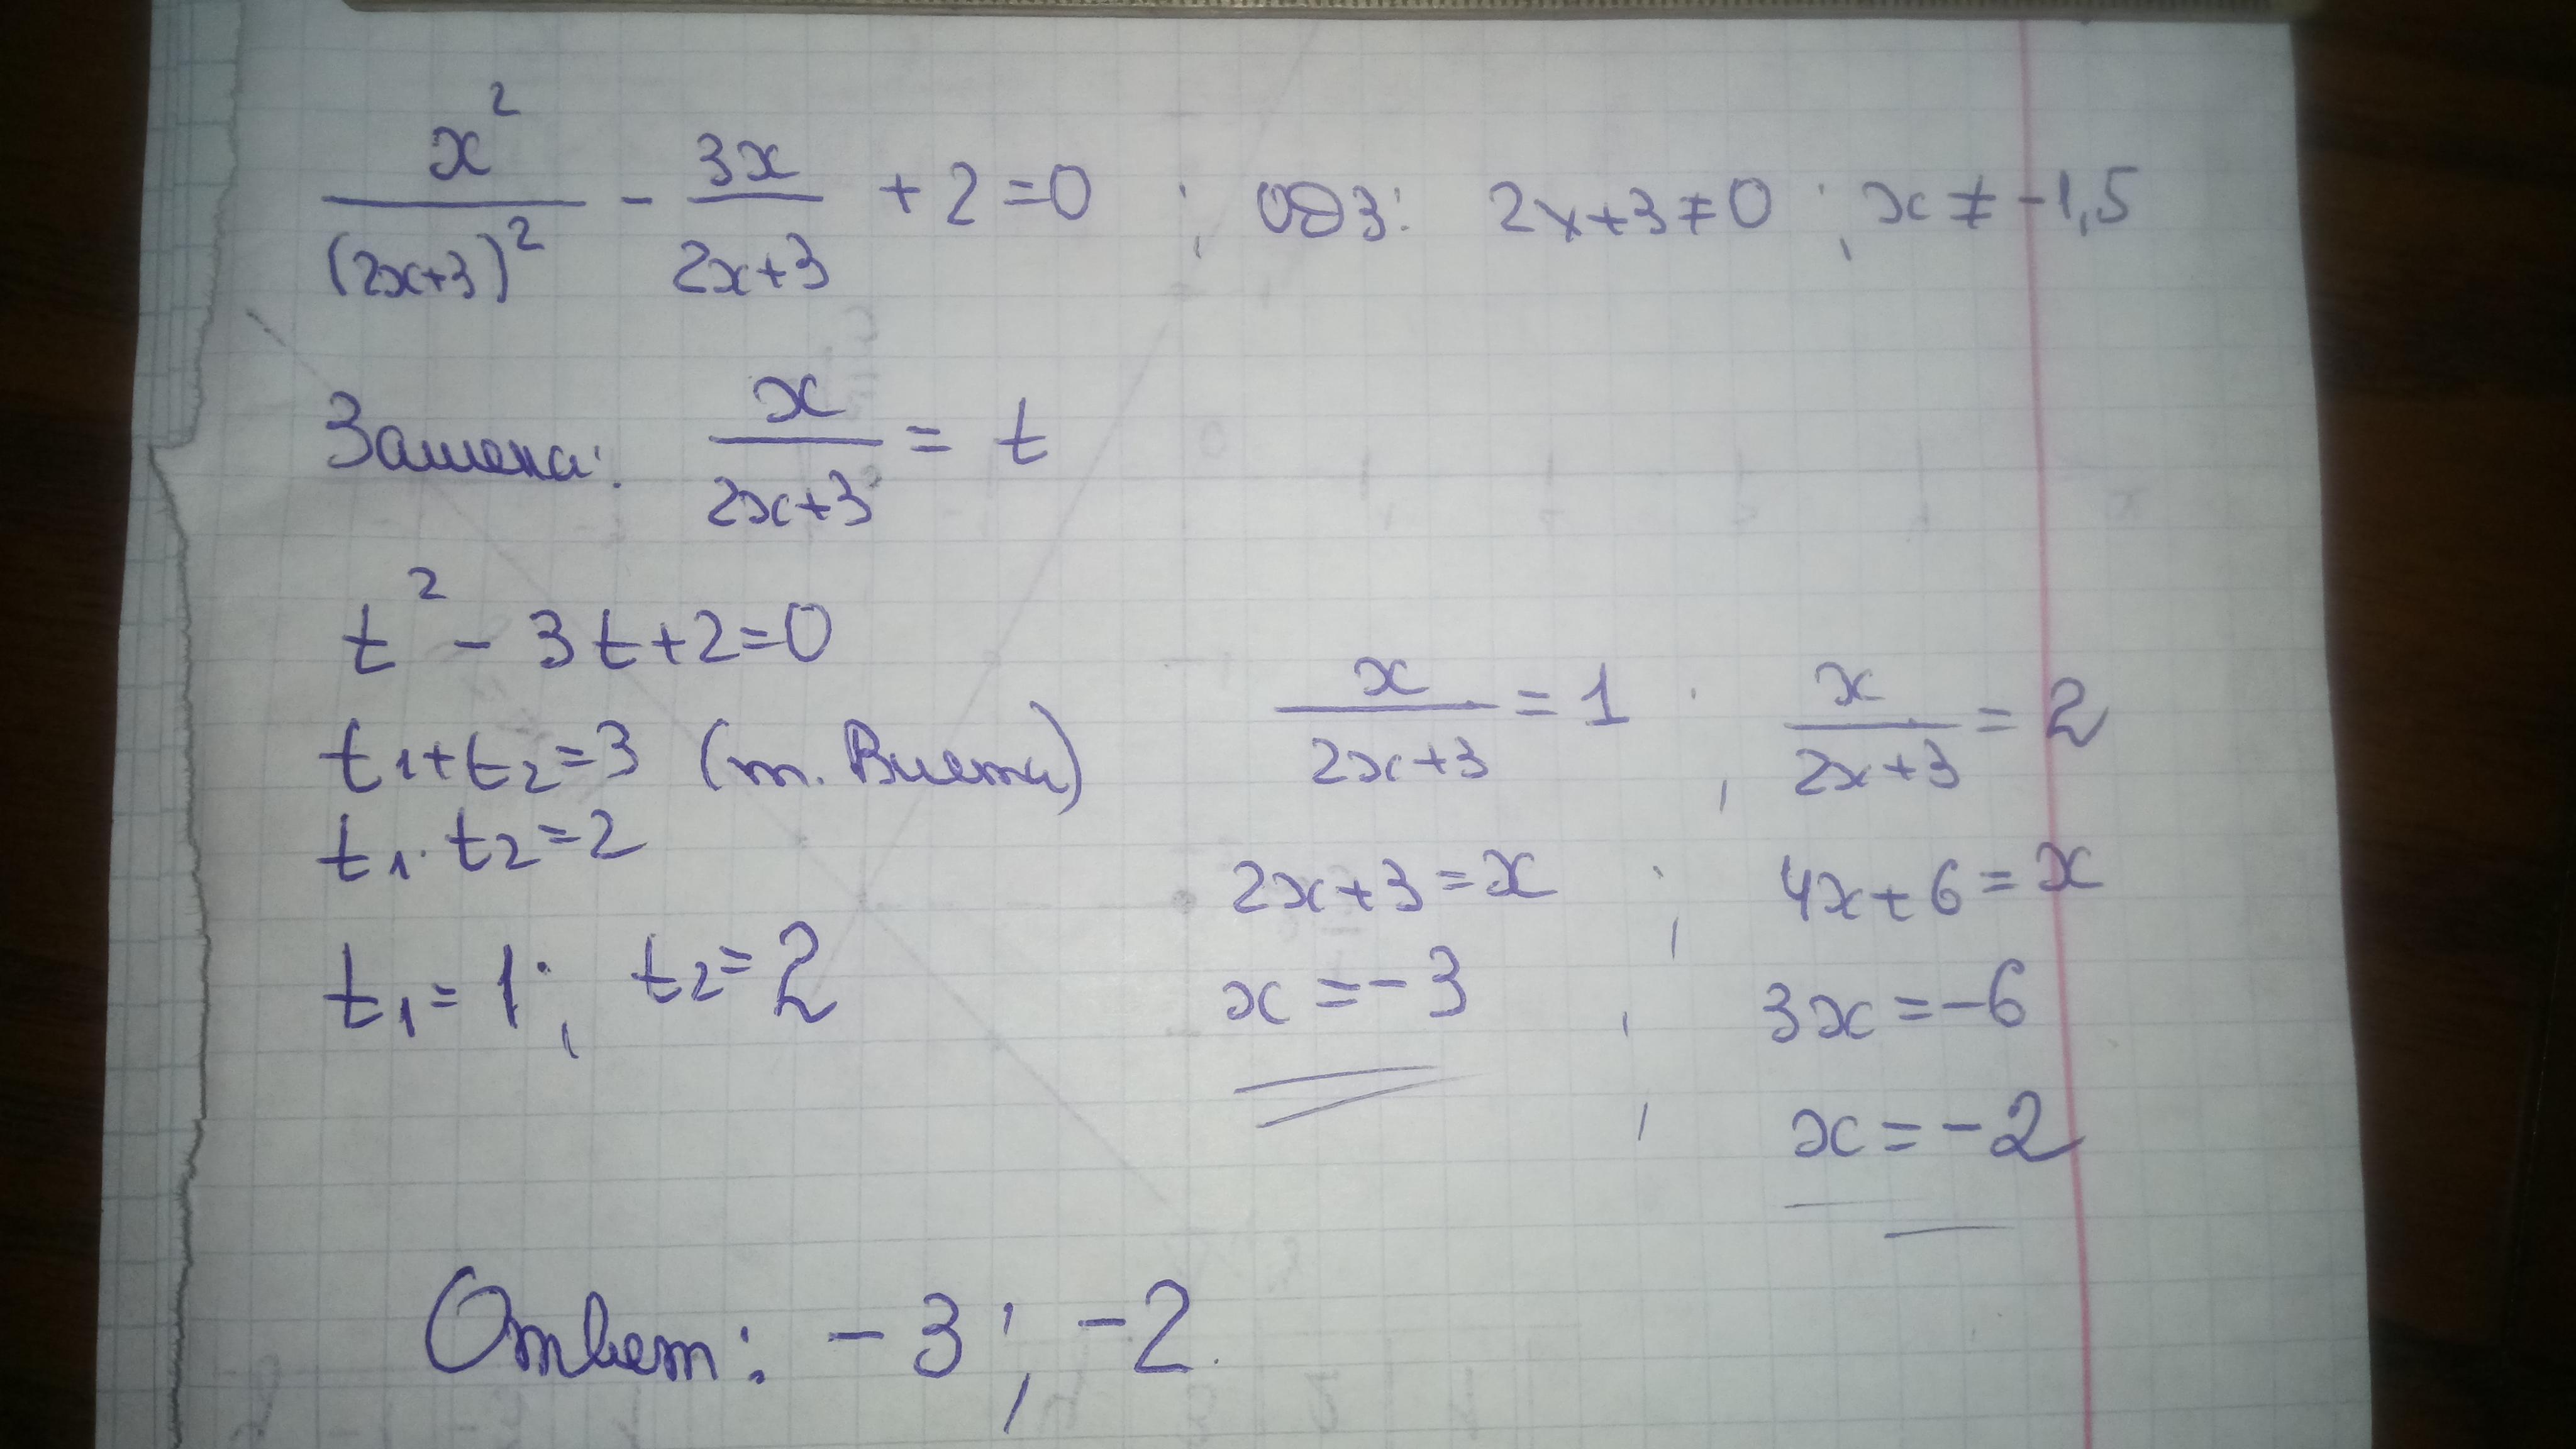 x²/(2x+3)² - 3x/(2x+3) + 2 = 0 ; ОДЗ: 2x+3≠0 ; x ≠ -1,5
Замена: x/(2x+3) = t
t² - 3t+2=0
t₁+t₂=3 (т. Виета)
t₁·t₂=2
t₁=1; t₂=2
x/(2x+3) = 1 ; x/(2x+3) = 2
2x+3=x ; 4x+6=x
x=-3 , 3x=-6
, x=-2
Ответ: -3; -2.